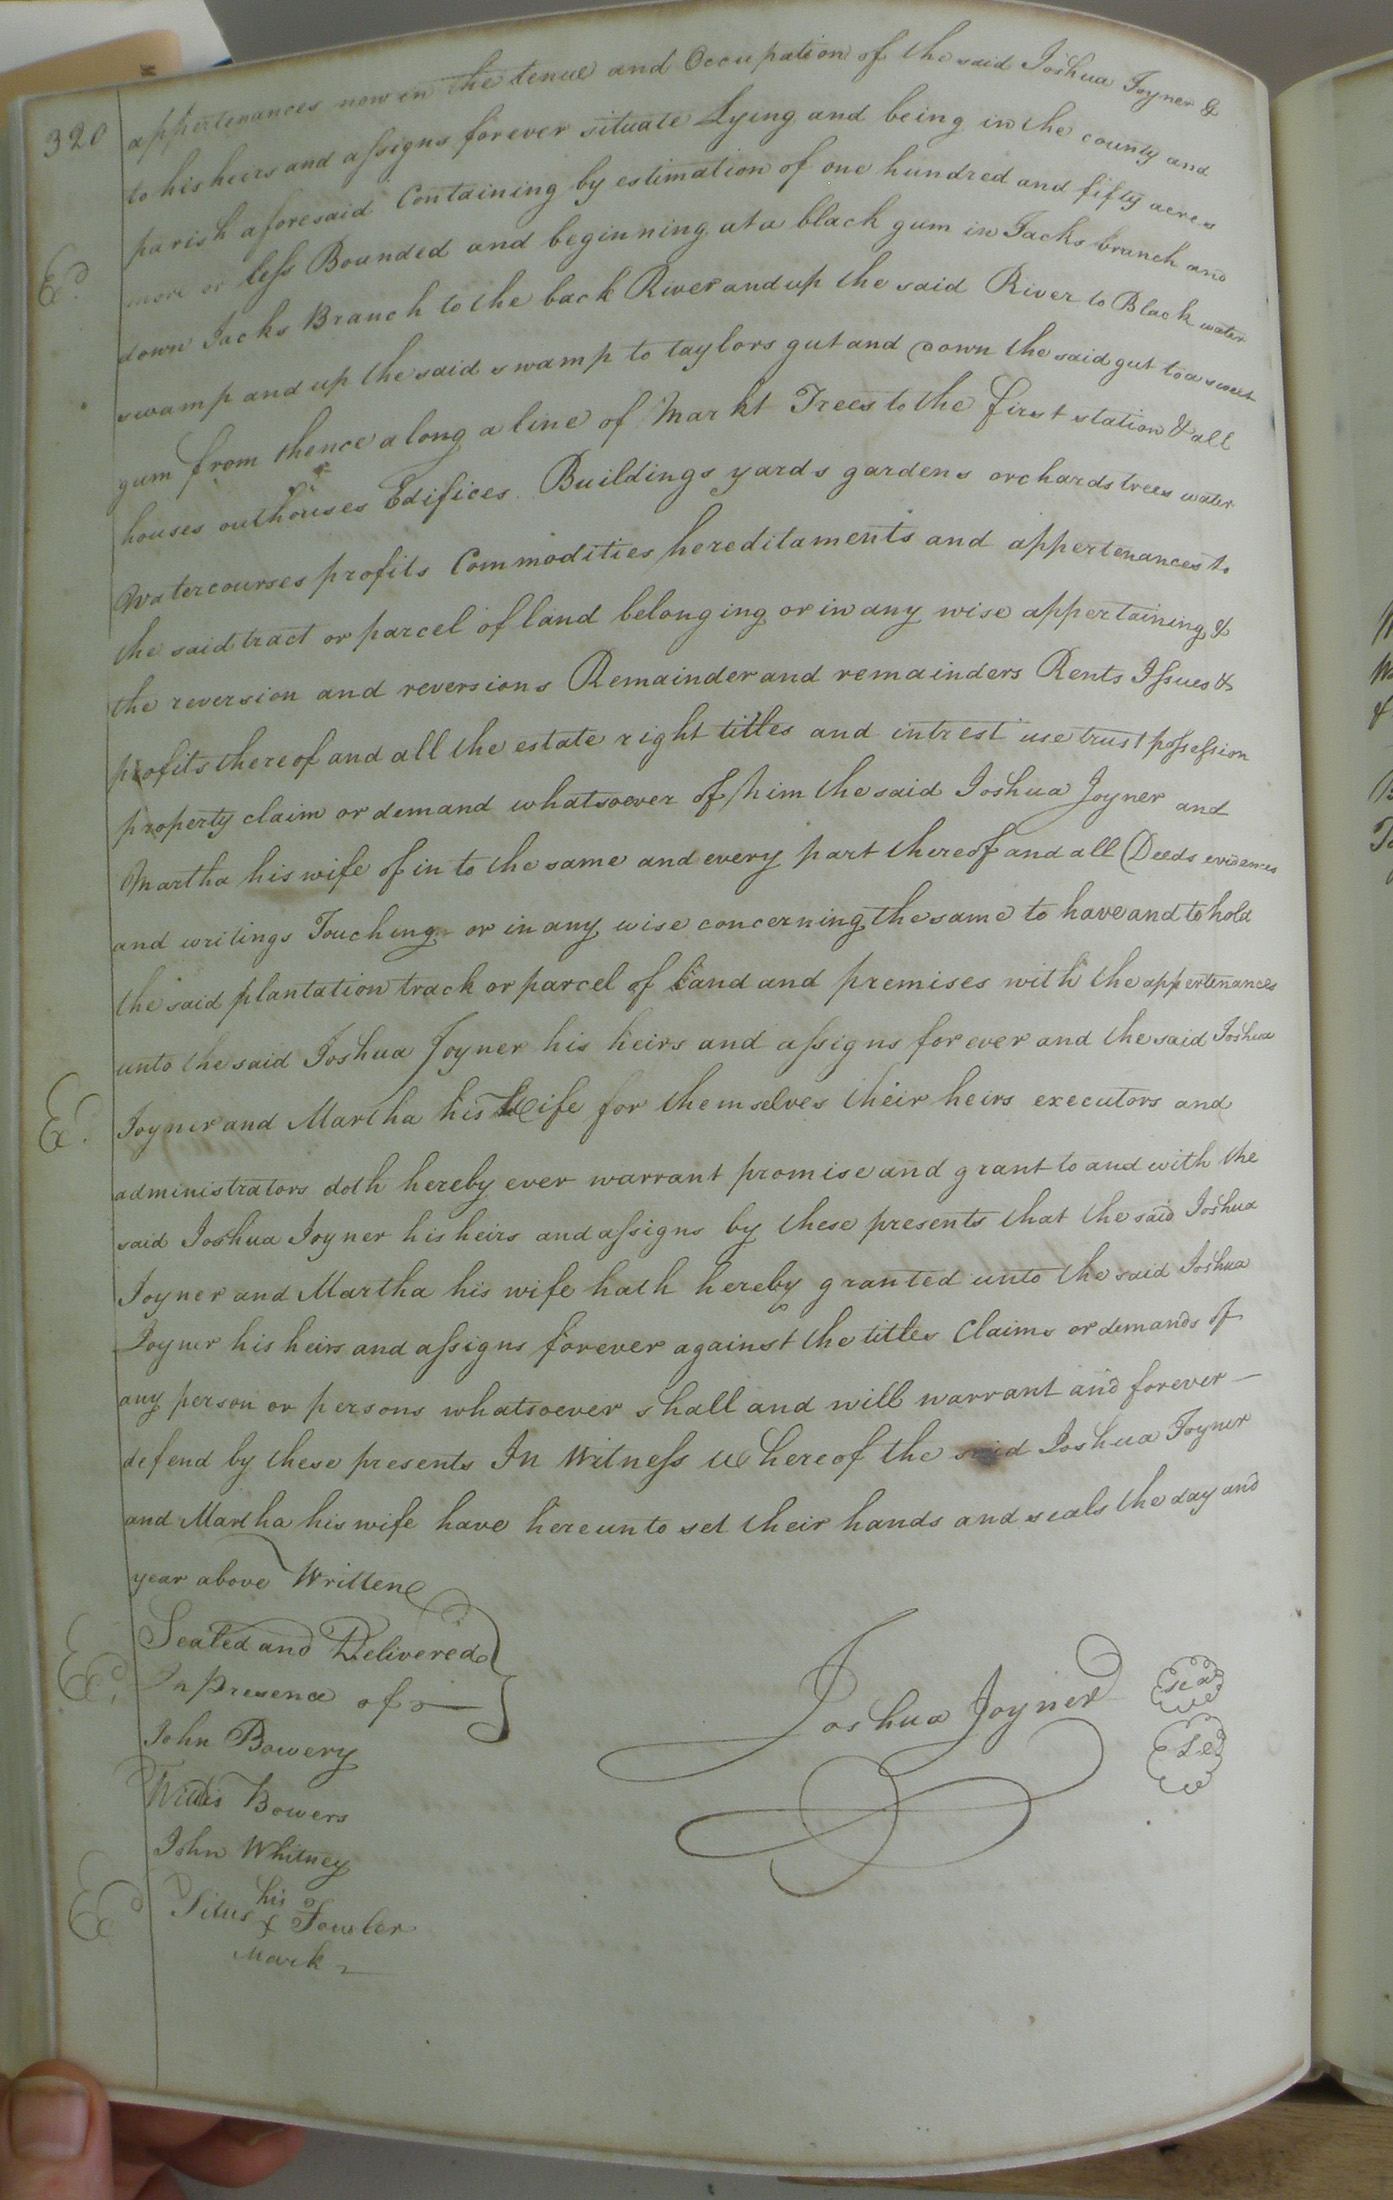 320
appertenances now in the tenue and Occupation of the said Joshua Joyner &
to his heirs and assigns forever situate Lying and being in the county and
parish aforesaid Containing by estimation of one hundred and fifty acres
more or less Bounded and beginning at a black gum in Jacks branch and
down Jacks Branch to the back River and up the said River to Black water
swamp and up the said swamp to taylors gut and down the said gut to a sweet
gum from thence along a line of Markt Trees to the first station & all
houses outhouses Edifices Buildings yards gardens orchards trees water
Watercourses profits Commodities hereditaments and appertenances to
the said tract or parcel of land belonging or in any wise appertaining &
the reversion and reversions Remainder and remainders Rents Issues &
profits thereof and all the estate right titles and intrest use trust possession
property claim or demand whatsoever of him the said Joshua Joyner and
Martha his wife of in to the same and every part thereof and all Deeds evidences
and writings Touching or in any wise concerning the same to have and to hold
the said plantation track or parcel of Land and premises with the appertenances
unto the said Joshua Joyner his heirs and assigns for ever and the said Joshua
Joyner and Martha his Wife for themselves their heirs executors and
administrators doth hereby ever warrant promise and grant to and with the
said Joshua Joyner his heirs and assigns by these presents that the said Joshua
Joyner and Martha his wife hath hereby granted unto the said Joshua
Joyner his heirs and assigns forever against the titles Claims or demands of
any person or persons whatsoever shall and will warrant and forever —
defend by these presents In Witness whereof the said Joshua Joyner
and Martha his wife have hereunto set their hands and seals the day and
year above Written
Sealed and Delivered
In presence of
Joshua Joyner seal
John Bowery
Willis Bowers
John Whitney
his
Titus x Fowler
Mark